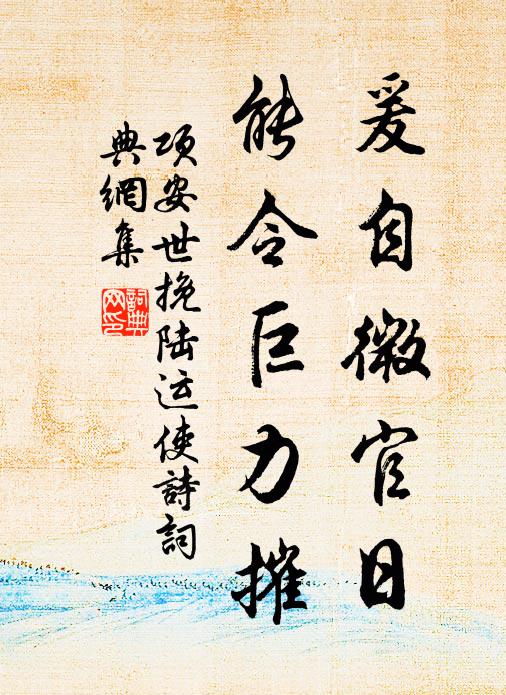 爰自微官日
能令巨力摧
项安世挽陆运使詩詞
典網集
詞典
网印